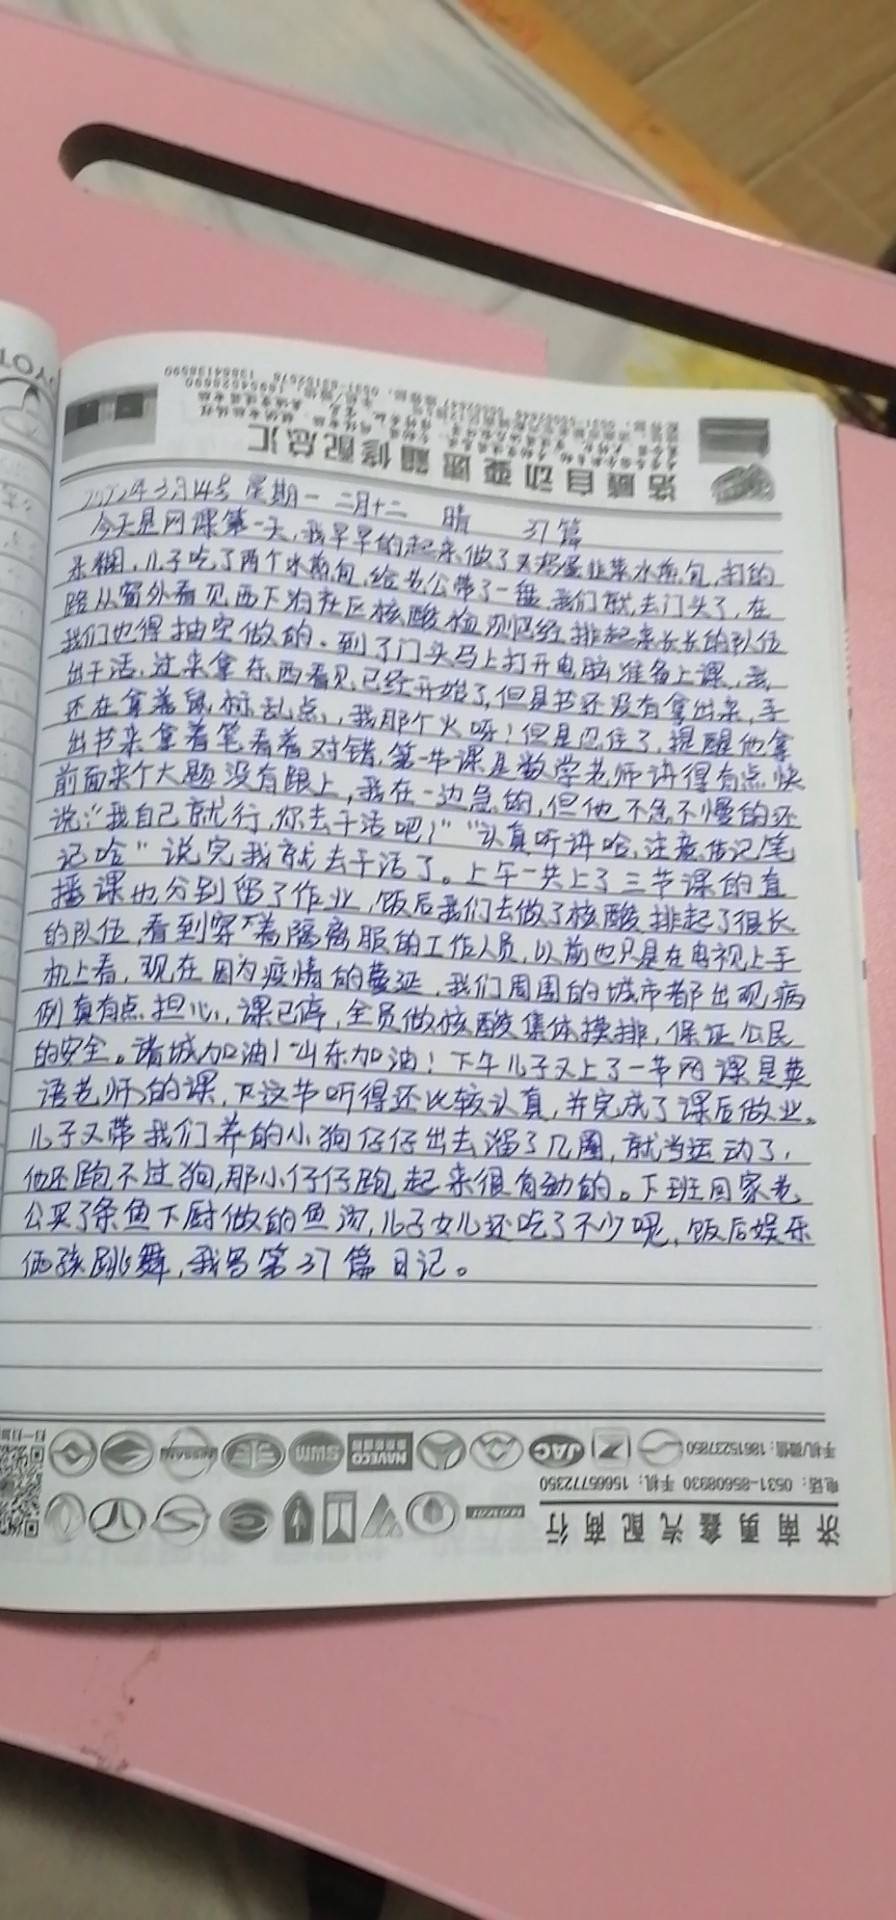 2022年3月14号 星期一 二月十二 晴 37篇
今天是网课第一天,我早早的起来做了 鸡蛋韭菜水煎包,打的
糊,儿子吃了两个水煎包,给老公带了一盘,我们就去门头了,在
路从窗外看见西下 社区核酸检测已经排起来长长的队伍
我们也得抽空做的。到了门头马上打开电脑准备上课,我
出干活,过来拿东西看见已经开始了,但是书还没有拿出来,手
还在拿着鼠标乱点,我那个火呀!但是忍住了,提醒他拿
出书来拿着笔看着对错,第一节课是数学老师讲得有点快
前面来个大题没有跟上,我在一边急的,但他不急不慢的还
说:"我自己就行,你去干活吧!""认真听讲哈,注意 记笔
记哈"说完我就去干活了。上午一共上了三节课的直
播课也分别留了作业,饭后我们去做了核酸排起了很长
的队伍,看到穿着隔离服的工作人员,以前也只是在电视上手
机上看,现在因为疫情的蔓延,我们周围的城市都出现病
例真有点担心,课已停,全员做核酸集体摸排,保证公民
的安全。诸城加油!山东加油!下午儿子又上了一节网课是英
语老师的课,下这节听得还比较认真,并完成了课后做业。
儿子又带我们养的小狗仔仔出去溜了几圈,就当运动了,
他还跑不过狗,那小仔仔跑起来很有劲的。下班回家老
公买了条鱼下厨做的鱼汤,儿子女儿还吃了不少呢,饭后娱乐
俩孩跳舞,我写第37篇日记。
浩盛自动变速箱修配总汇
济南勇鑫汽配商行
电话:0531-85608930 手机:15665772350
手机/微信:18615237850
JAC
NAVECO
SWM
NISSAN